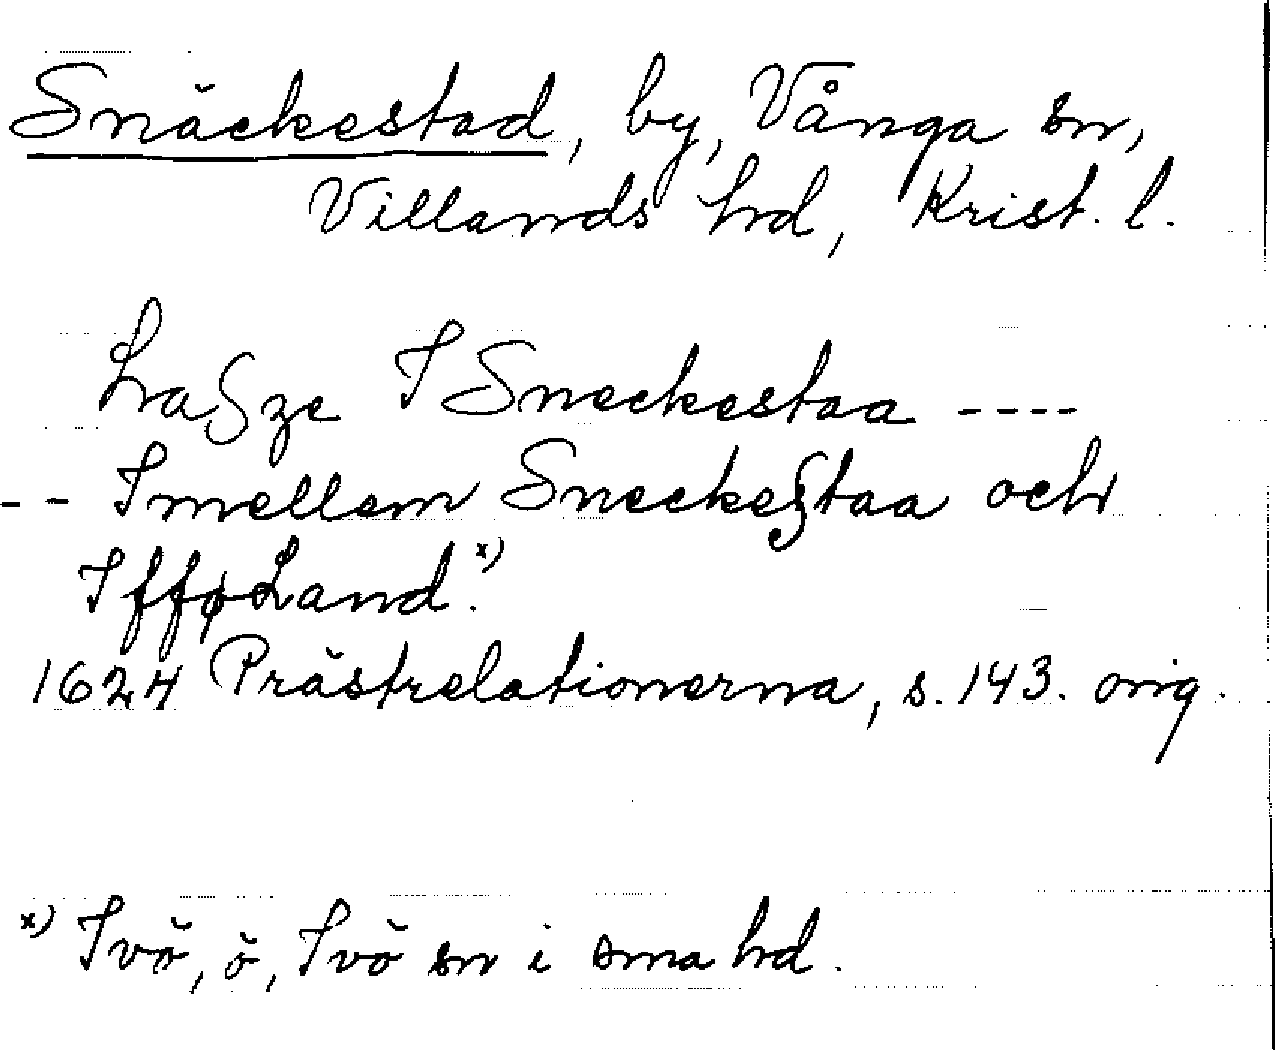 Snäckestad, by, Vånga sn,
Villands hrd, Krist. l.
Lasze I Sneckestaa ----
-- Imellem Sneckestaa och
IfføLand.x)
1624 Prästrelationerna, s. 143. orig.
x) Ivö, ö, Ivö sn i sma hrd.